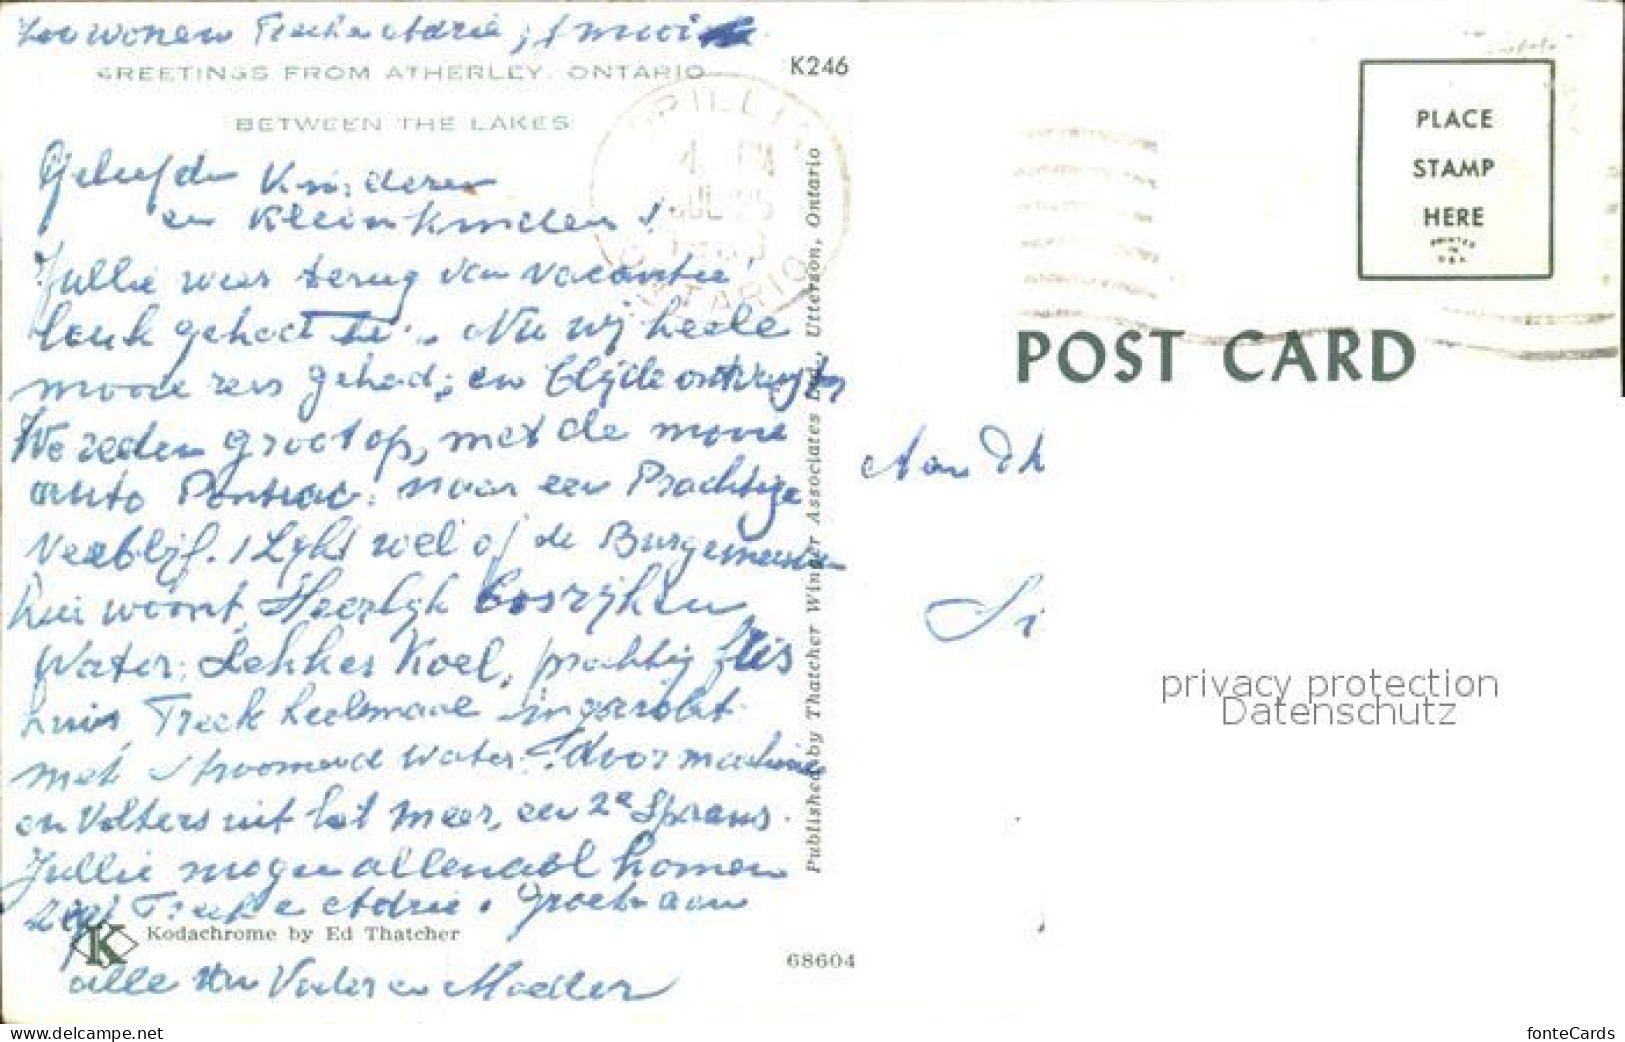 Zoo wonen Freek en Adrie, 't mooi
GREETINGS FROM ATHERLEY, ONTARIO
BETWEEN THE LAKES
K246
Geliefde Kinderen
en Kleinkinderen!
Jullie weer terug van vacantie!
Leuk gehad
Nu wij heele
mooie reis gehad; en blijde ontvangen
We reden groot op, met de mooie
auto Pontiac. naar een Prachtige
verblijf. 't Lijkt wel of de Burgemeester
hier woont, Heerlijk bosrijk en
Water; Lekker Koel, prachtig
huis Freek heelemaal
met stroomend water. door machine
en Volters uit het meer, een 2e
Jullie mogen allemaal komen
zegt Freek en Adrie. Groeten aan
alle van Vader en Moeder
Kodachrome by Ed Thatcher
K
68604
Published by Thatcher Winger Associates Ltd., Utterson, Ontario
ORILLIA
JUL 25
ONTARIO
PLACE
STAMP
HERE
PRINTED
IN
U.S.A.
POST CARD
Aan
privacy protection
Datenschutz
www.delcampe.net
fonteCards